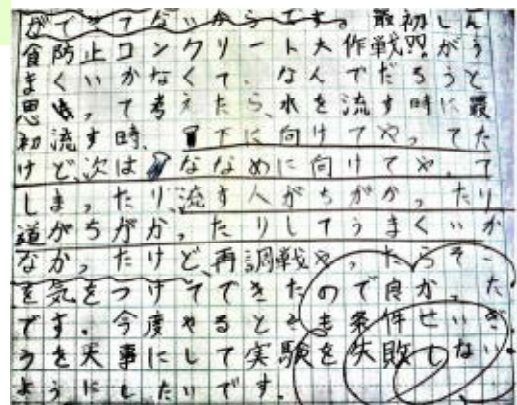 ができてないからです。最初しん
食防止コンクリート大作戦!!がう
まくいかなくて、なんでだろうと
思って考えたら、水を流す時に最
初流す時、下に向けてやってた
けど、次はななめに向けてやって
しまったり、流す人がちがかったり
道がちがかったりしてうまくいか
なかったけど、再調戦やったらそー
を気をつけてできたので良かった
です。今度やるときも条件せいぎ
うを天事にして実験を失敗しない
ようにしたいです。